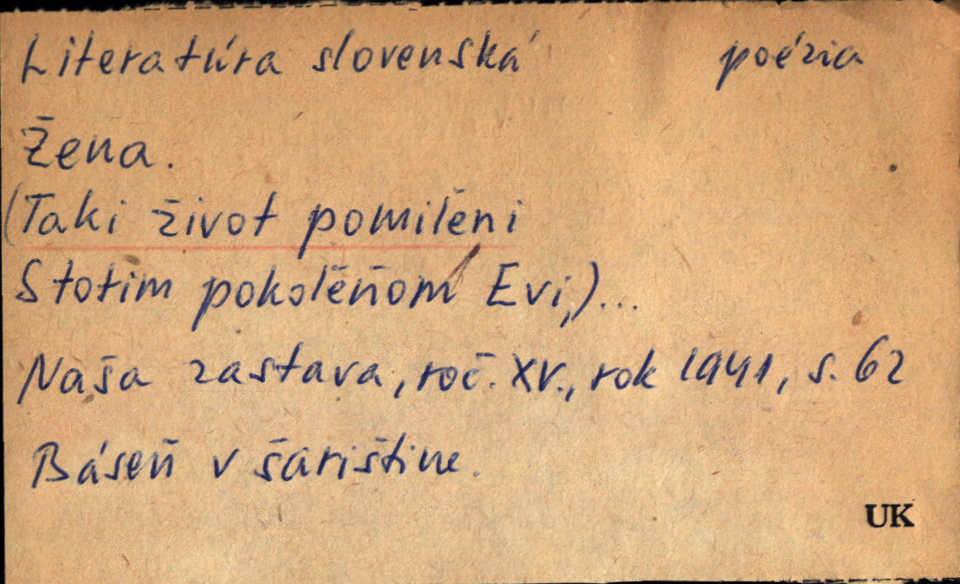 Literatúra slovenská poézia
Žena.
(Taki život pomileni
Stotim pokoleňom Evi,)...
Naša zastava, roč. XV., rok 1941, s. 62
Báseň v šarištine.
UK